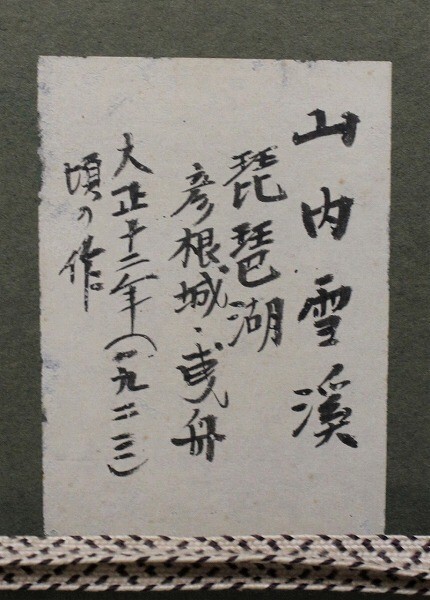 山内雪溪
琵琶湖
彦根城・曳舟
大正十二年(一九二三)
頃の作